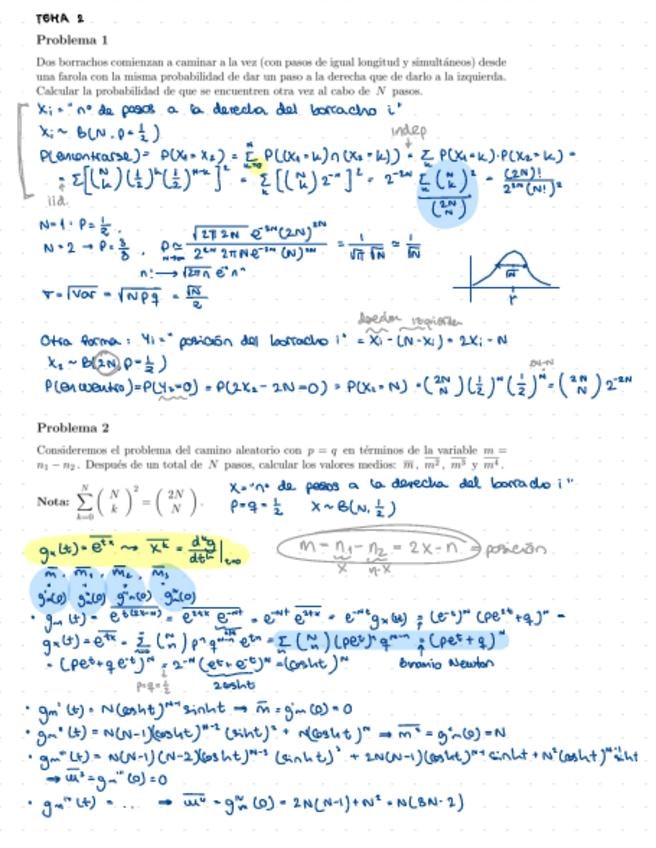 TEMA 2
Problema 1
Dos borrachos comienzan a caminar a la vez (con pasos de igual longitud y simultáneos) desde
una farola con la misma probabilidad de dar un paso a la derecha que de darlo a la izquierda.
Calcular la probabilidad de que se encuentren otra vez al cabo de N pasos.
Xi = "nº de pasos a la derecha del borracho i"
Xi ~ B(N, p=1/2)
indep
P(encontrarse) = P(X₁=X₂) = Σ P((X₁=k)∩(X₂=k)) = Σ P(X₁=k)·P(X₂=k) =
= Σ[(N k)(1/2)^k(1/2)^(N-k)]² = Σ[(N k)2^-N]² = 2^-2N Σ(N k)² = (2N)!/(2^2N(N!)²)
iid.
(2N N)
N=1: P=1/2,
N=2 → P=3/8, P ≃ √(2π2N) e^-2N (2N)^2N / (2^2N 2πN e^-2N (N)^2N) = 1/(√π √N) ≃ 1/√N
N→∞
n! → √(2πn) e^-n n^n
σ = √Var = √(Npq) = √N/2
derecha izquierda
Otra forma: Yi = "posición del borracho i" = Xi - (N-Xi) = 2Xi - N
X₂ ~ B(2N, p=1/2)
P(encuentro) = P(Y₂=0) = P(2X₂-2N=0) = P(X₂=N) = (2N N)(1/2)^N(1/2)^N = (2N N) 2^-2N
2N-N
Problema 2
Consideremos el problema del camino aleatorio con p = q en términos de la variable m =
n₁ − n₂. Después de un total de N pasos, calcular los valores medios: m̄, m̄², m̄³ y m̄⁴.
Nota: Σ_{k=0}^{N} (N k)² = (2N N).
X = "nº de pasos a la derecha del borracho i"
p=q=1/2 X~B(N,1/2)
m = n₁ - n₂ = 2x - n → posición
x n-x
m̄, m̄₁, m̄₂, m̄₃
= (pe^t+qe^-t)^N = 2^-N (e^t+e^-t)^N = (cosh t)^N
binomio Newton
p=q=1/2
2cosht
· gm'(t) = N(cosh t)^(N-1) sinh t → m̄ = g'm(0) = 0
· gm''(t) = N(N-1)(cosh t)^(N-2) (sinh t)² + N(cosh t)^N → m̄² = g''m(0) = N
· gm'''(t) = N(N-1)(N-2)(cosh t)^(N-3) (sinh t)³ + 2N(N-1)(cosh t)^(N-1) sinh t + N²(cosh t)^(N-1) sinh t
→ m̄³ = gm'''(0) = 0
· gm''''(t) = ... → m̄⁴ = g''''m(0) = 2N(N-1) + N² = N(3N-2)